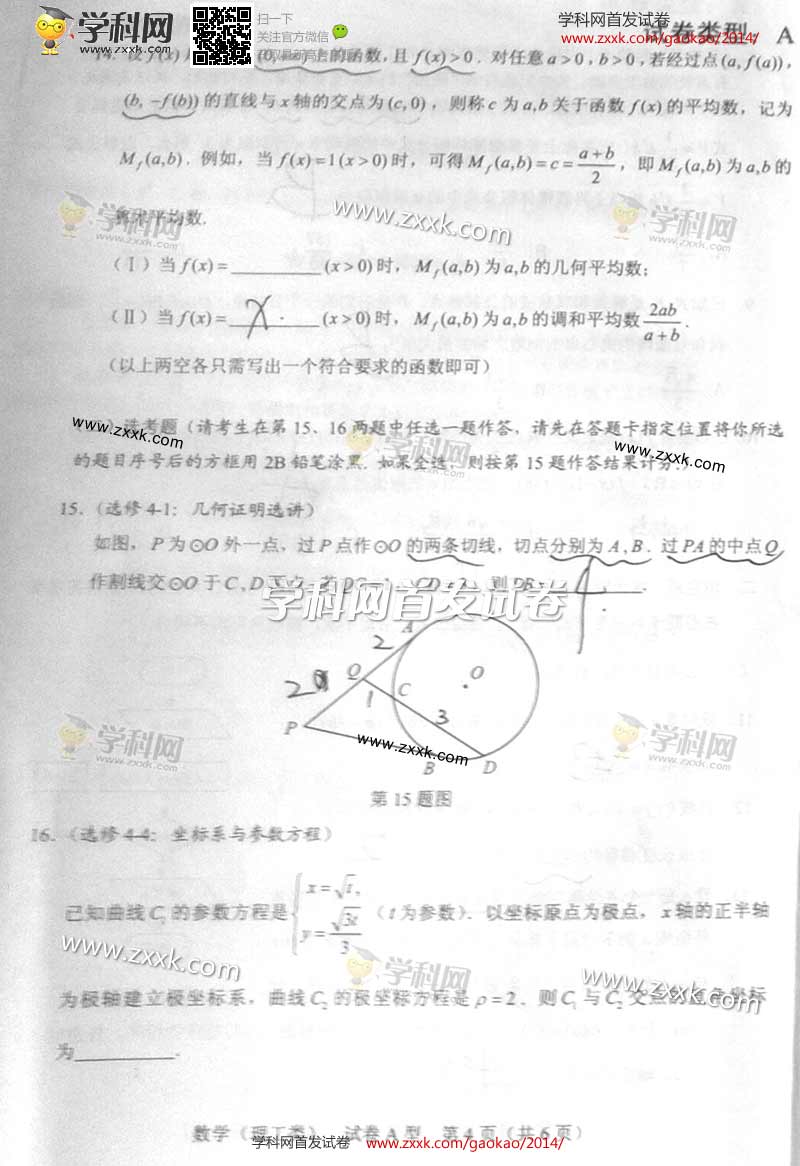 学科网
www.zxxk.com
扫一下
关注官方微信
学科网首发试卷
www.zxxk.com/gaokao/2014/
试卷类型: A
上的函数,且 f(x)>0. 对任意 a>0, b>0, 若经过点 (a, f(a)),
(b, -f(b)) 的直线与 x 轴的交点为 (c,0), 则称 c 为 a,b 关于函数 f(x) 的平均数, 记为
M_f(a,b). 例如, 当 f(x)=1(x>0) 时, 可得 M_f(a,b)=c=(a+b)/2, 即 M_f(a,b) 为 a,b 的
算术平均数.
www.zxxk.com
学科网
zxxk.com
学科网
zxxk.com
(Ⅰ) 当 f(x)=________(x>0) 时, M_f(a,b) 为 a,b 的几何平均数;
(Ⅱ) 当 f(x)=___x___(x>0) 时, M_f(a,b) 为 a,b 的调和平均数 2ab/(a+b).
(以上两空各只需写出一个符合要求的函数即可)
选考题 (请考生在第 15、16 两题中任选一题作答, 请先在答题卡指定位置将你所选
www.zxxk.com
学科网
www.zxxk.com
的题目序号后的方框用 2B 铅笔涂黑. 如果全选, 则按第 15 题作答结果计分.)
15. (选修 4-1: 几何证明选讲)
如图, P 为⊙O 外一点, 过 P 点作⊙O 的两条切线, 切点分别为 A, B. 过 PA 的中点 Q
作割线交⊙O 于 C, D 则 PB= 4
学科网首发试卷
A
2
Q
2
1
C
O
3
P
www.zxxk.com
B
D
第 15 题图
学科网
zxxk.com
学科网
zxxk.com
16. (选修 4-4: 坐标系与参数方程)
已知曲线 C₁ 的参数方程是 { x=√t, y=√(3t)/3 (t 为参数). 以坐标原点为极点, x 轴的正半轴
www.zxxk.com
学科网
zxxk.com
www.zxxk.com
为极轴建立极坐标系, 曲线 C₂ 的极坐标方程是 ρ=2. 则 C₁ 与 C₂ 交点的直角坐标
为________.
数学 (理工类) 试卷 A 型 第 4 页 (共 6 页)
学科网首发试卷
www.zxxk.com/gaokao/2014/